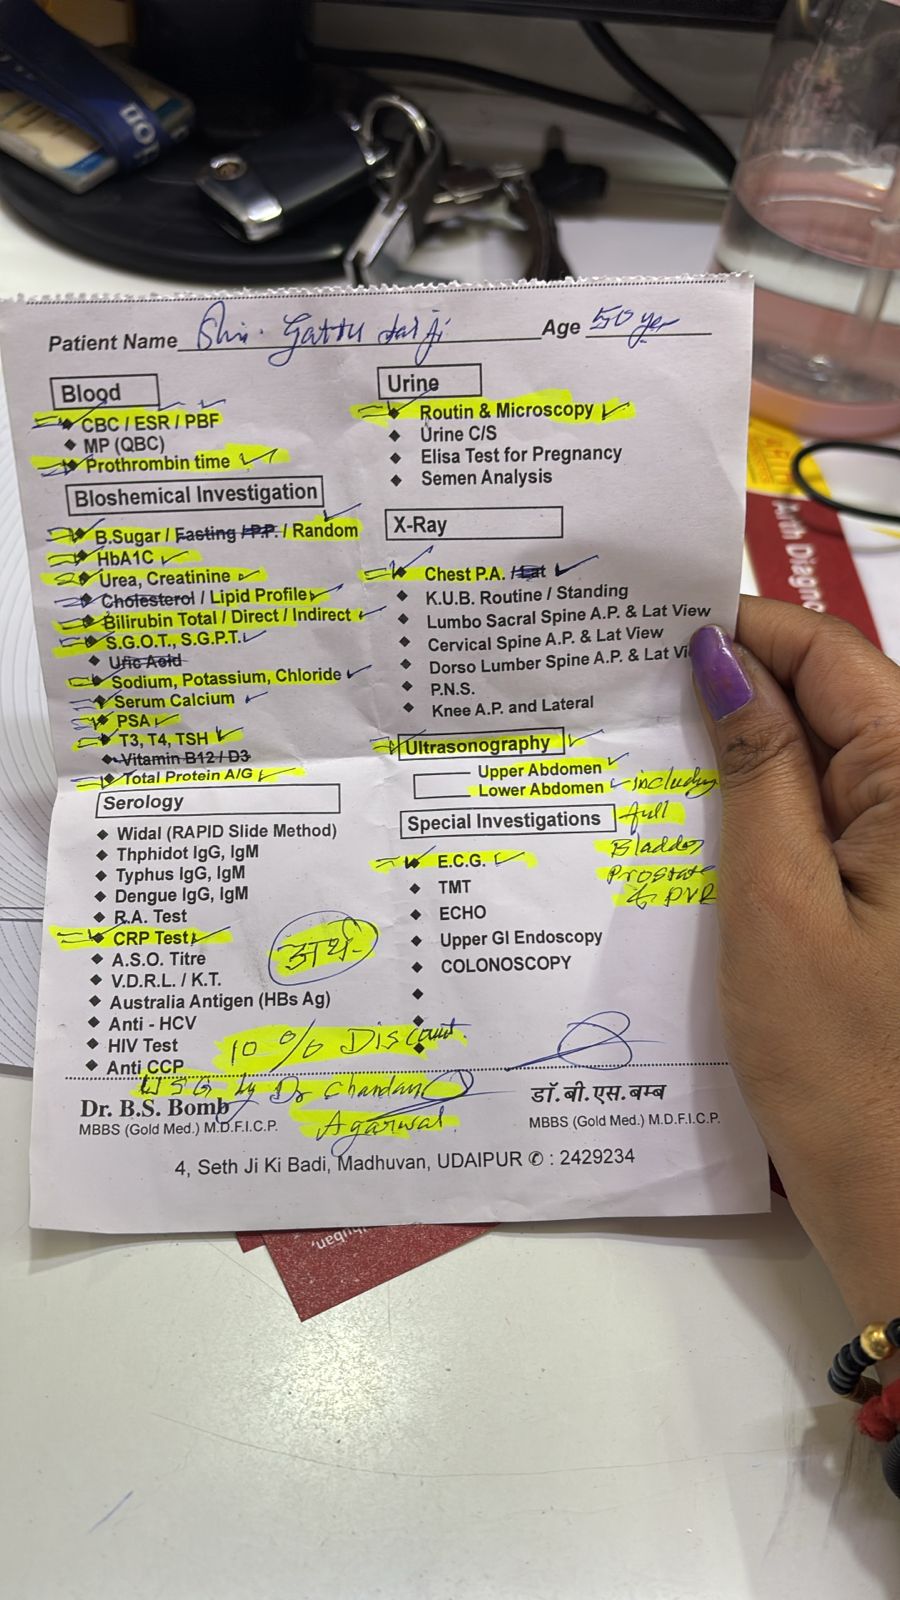 Patient Name Shri. Gattu Lal Ji Age 50 yer
Blood
CBC / ESR / PBF
MP (QBC)
Prothrombin time
Bioshemical Investigation
B.Sugar / Fasting / P.P. / Random
HbA1C
Urea, Creatinine
Cholesterol / Lipid Profile
Bilirubin Total / Direct / Indirect
S.G.O.T., S.G.P.T.
Uric Acid
Sodium, Potassium, Chloride
Serum Calcium
PSA
T3, T4, TSH
Vitamin B12 / D3
Total Protein A/G
Serology
Widal (RAPID Slide Method)
Thphidot IgG, IgM
Typhus IgG, IgM
Dengue IgG, IgM
R.A. Test
CRP Test
A.S.O. Titre
V.D.R.L. / K.T.
Australia Antigen (HBs Ag)
Anti - HCV
HIV Test
Anti CCP
अर्थ
Urine
Routin & Microscopy
Urine C/S
Elisa Test for Pregnancy
Semen Analysis
X-Ray
Chest P.A. / Lat
K.U.B. Routine / Standing
Lumbo Sacral Spine A.P. & Lat View
Cervical Spine A.P. & Lat View
Dorso Lumber Spine A.P. & Lat Vi
P.N.S.
Knee A.P. and Lateral
Ultrasonography
Upper Abdomen
Lower Abdomen including
full
Bladder
Prostate
& PVR
Special Investigations
E.C.G.
TMT
ECHO
Upper GI Endoscopy
COLONOSCOPY
10 % Discount
USG by Dr Chandan
Agarwal
Dr. B.S. Bomb
MBBS (Gold Med.) M.D.F.I.C.P.
डॉ.बी.एस.बम्ब
MBBS (Gold Med.) M.D.F.I.C.P.
4, Seth Ji Ki Badi, Madhuvan, UDAIPUR ✆ : 2429234
Arth Diagno
dhuban,